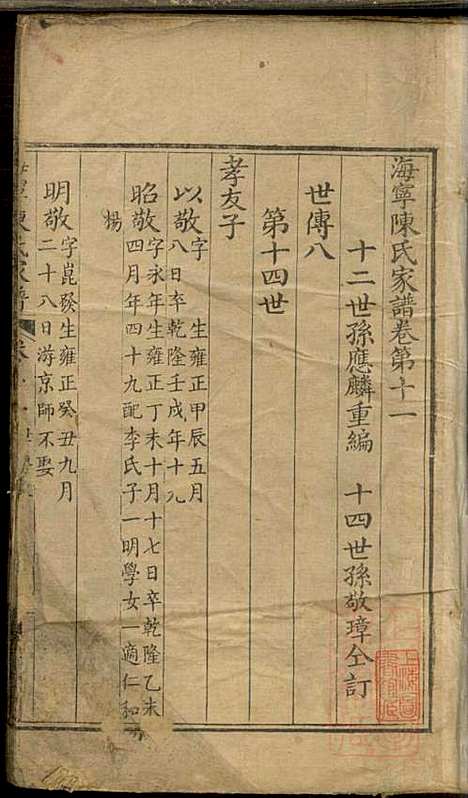 海寧陳氏家譜卷第十一
十二世孫應麟重編 十四世孫敬璋仝訂
世傳八
第十四世
孝友子
以敬字 生雍正甲辰五月
八日卒乾隆壬戌年十九
昭敬字永年生雍正丁未十月十七日卒乾隆乙未
四月年四十九配李氏子一明學女一適仁和
楊
明敬字崑發生雍正癸丑九月
二十八日游京師不娶
陳氏家譜